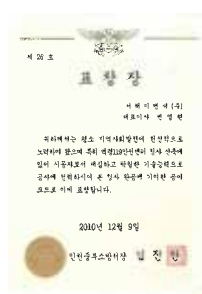 제 26 호
표 창 장
서해이앤씨(주)
대표이사
귀하께서는 평소 지역사회발전에 헌신적으로
노력하여 왔으며 특히 119안전센터 청사 신축에
있어 시공자로서 성실하고 탁월한 기술능력으로
공사에 전력하시어 본 청사 완공에 기여한 공이
크므로 이에 표창합니다.
2010년 12월 9일
인천중부소방서장 김 진